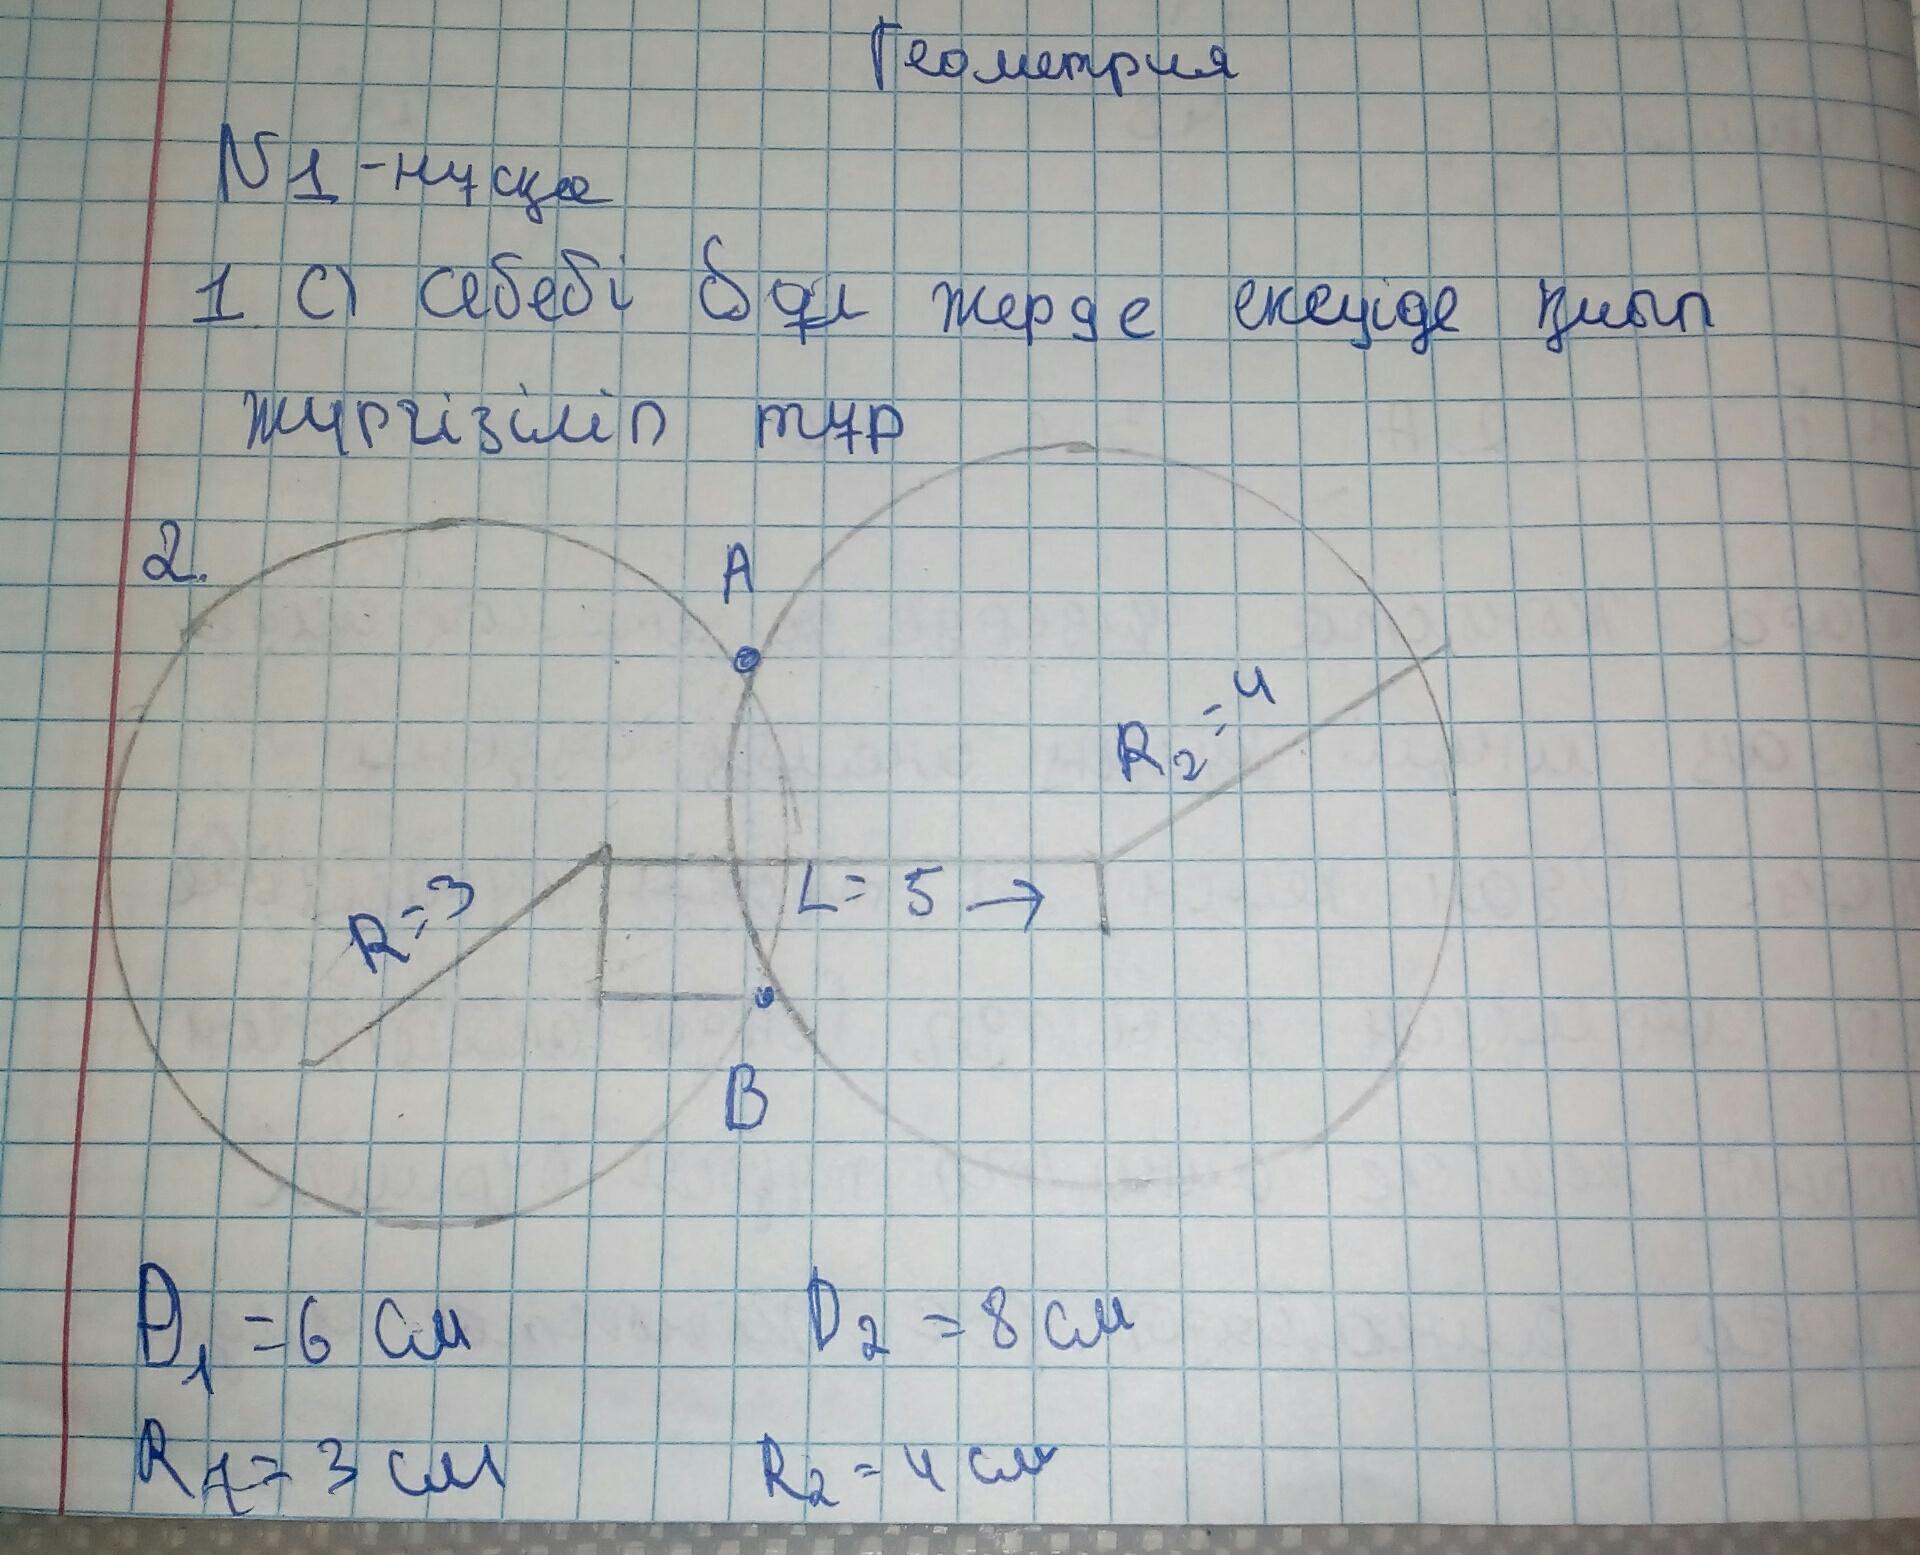 Геометрия
N1-нұсқа
1 С) себебі бұл жерде екеуіде қиып
жүргізіліп тұр
2.
A
R2=4
R=3
L= 5 →
B
D1 =6 см D2 =8 см
R1= 3 см R2=4 см